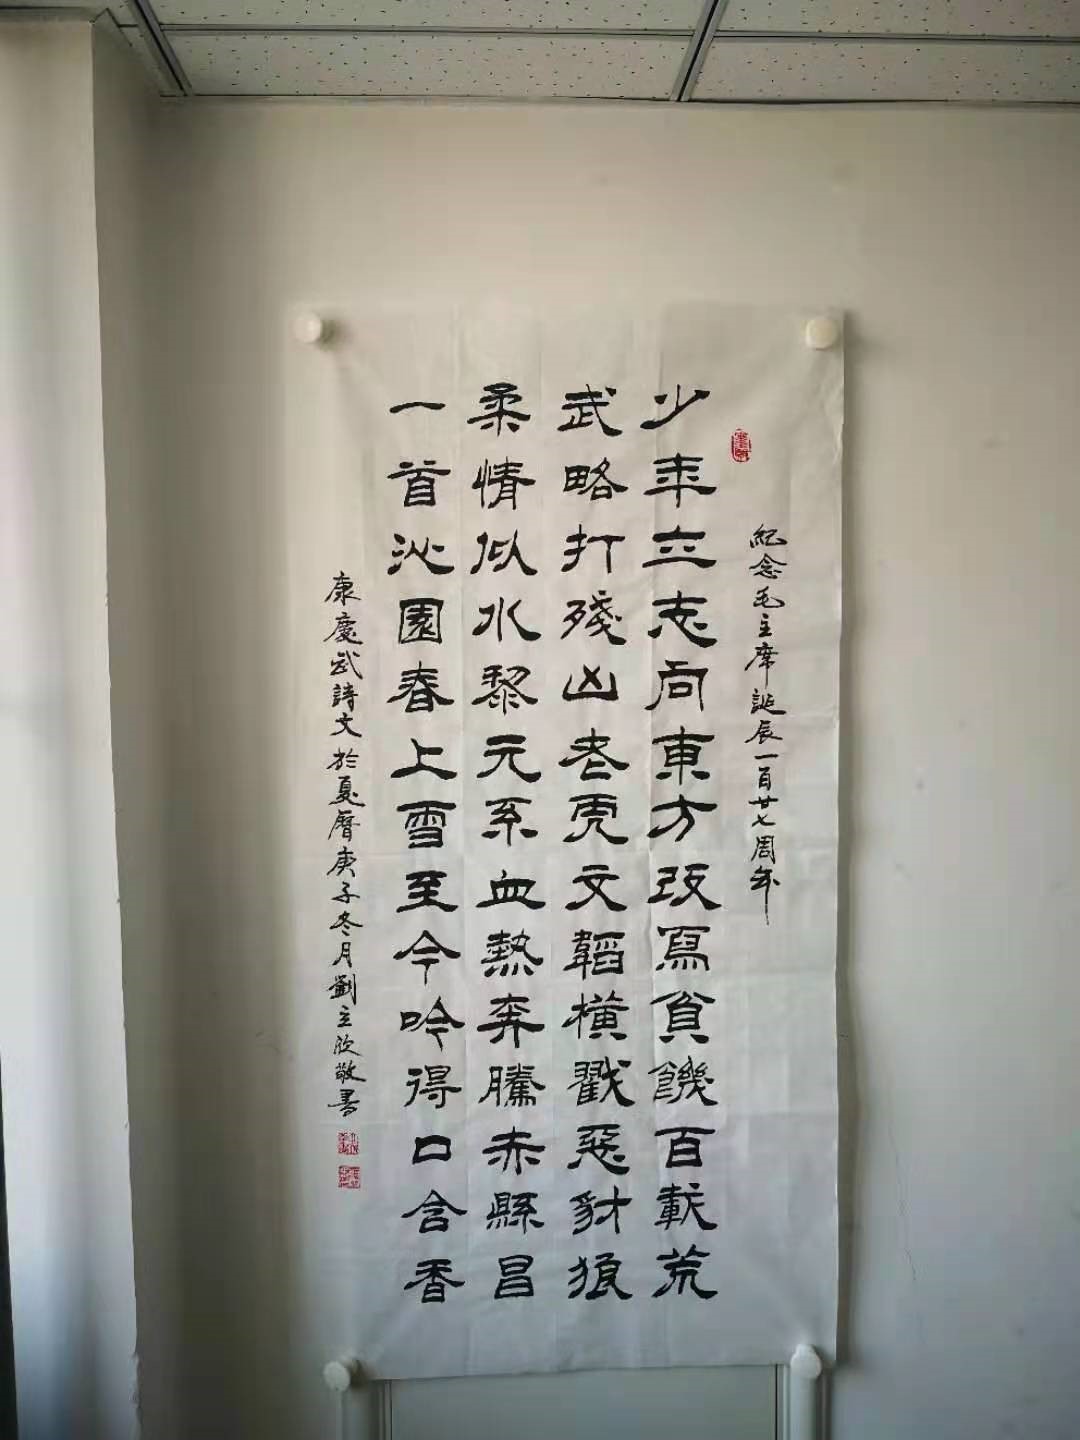 紀念毛主席誕辰一百廿七周年
少年立志向東方改寫貧饑百載荒
武略打殘凶老虎文韜橫戳惡豺狼
柔情似水黎元系血熱奔騰赤縣昌
一首沁園春上雪至今吟得口含香
康慶武詩文於夏曆庚子冬月劉立欣敬書